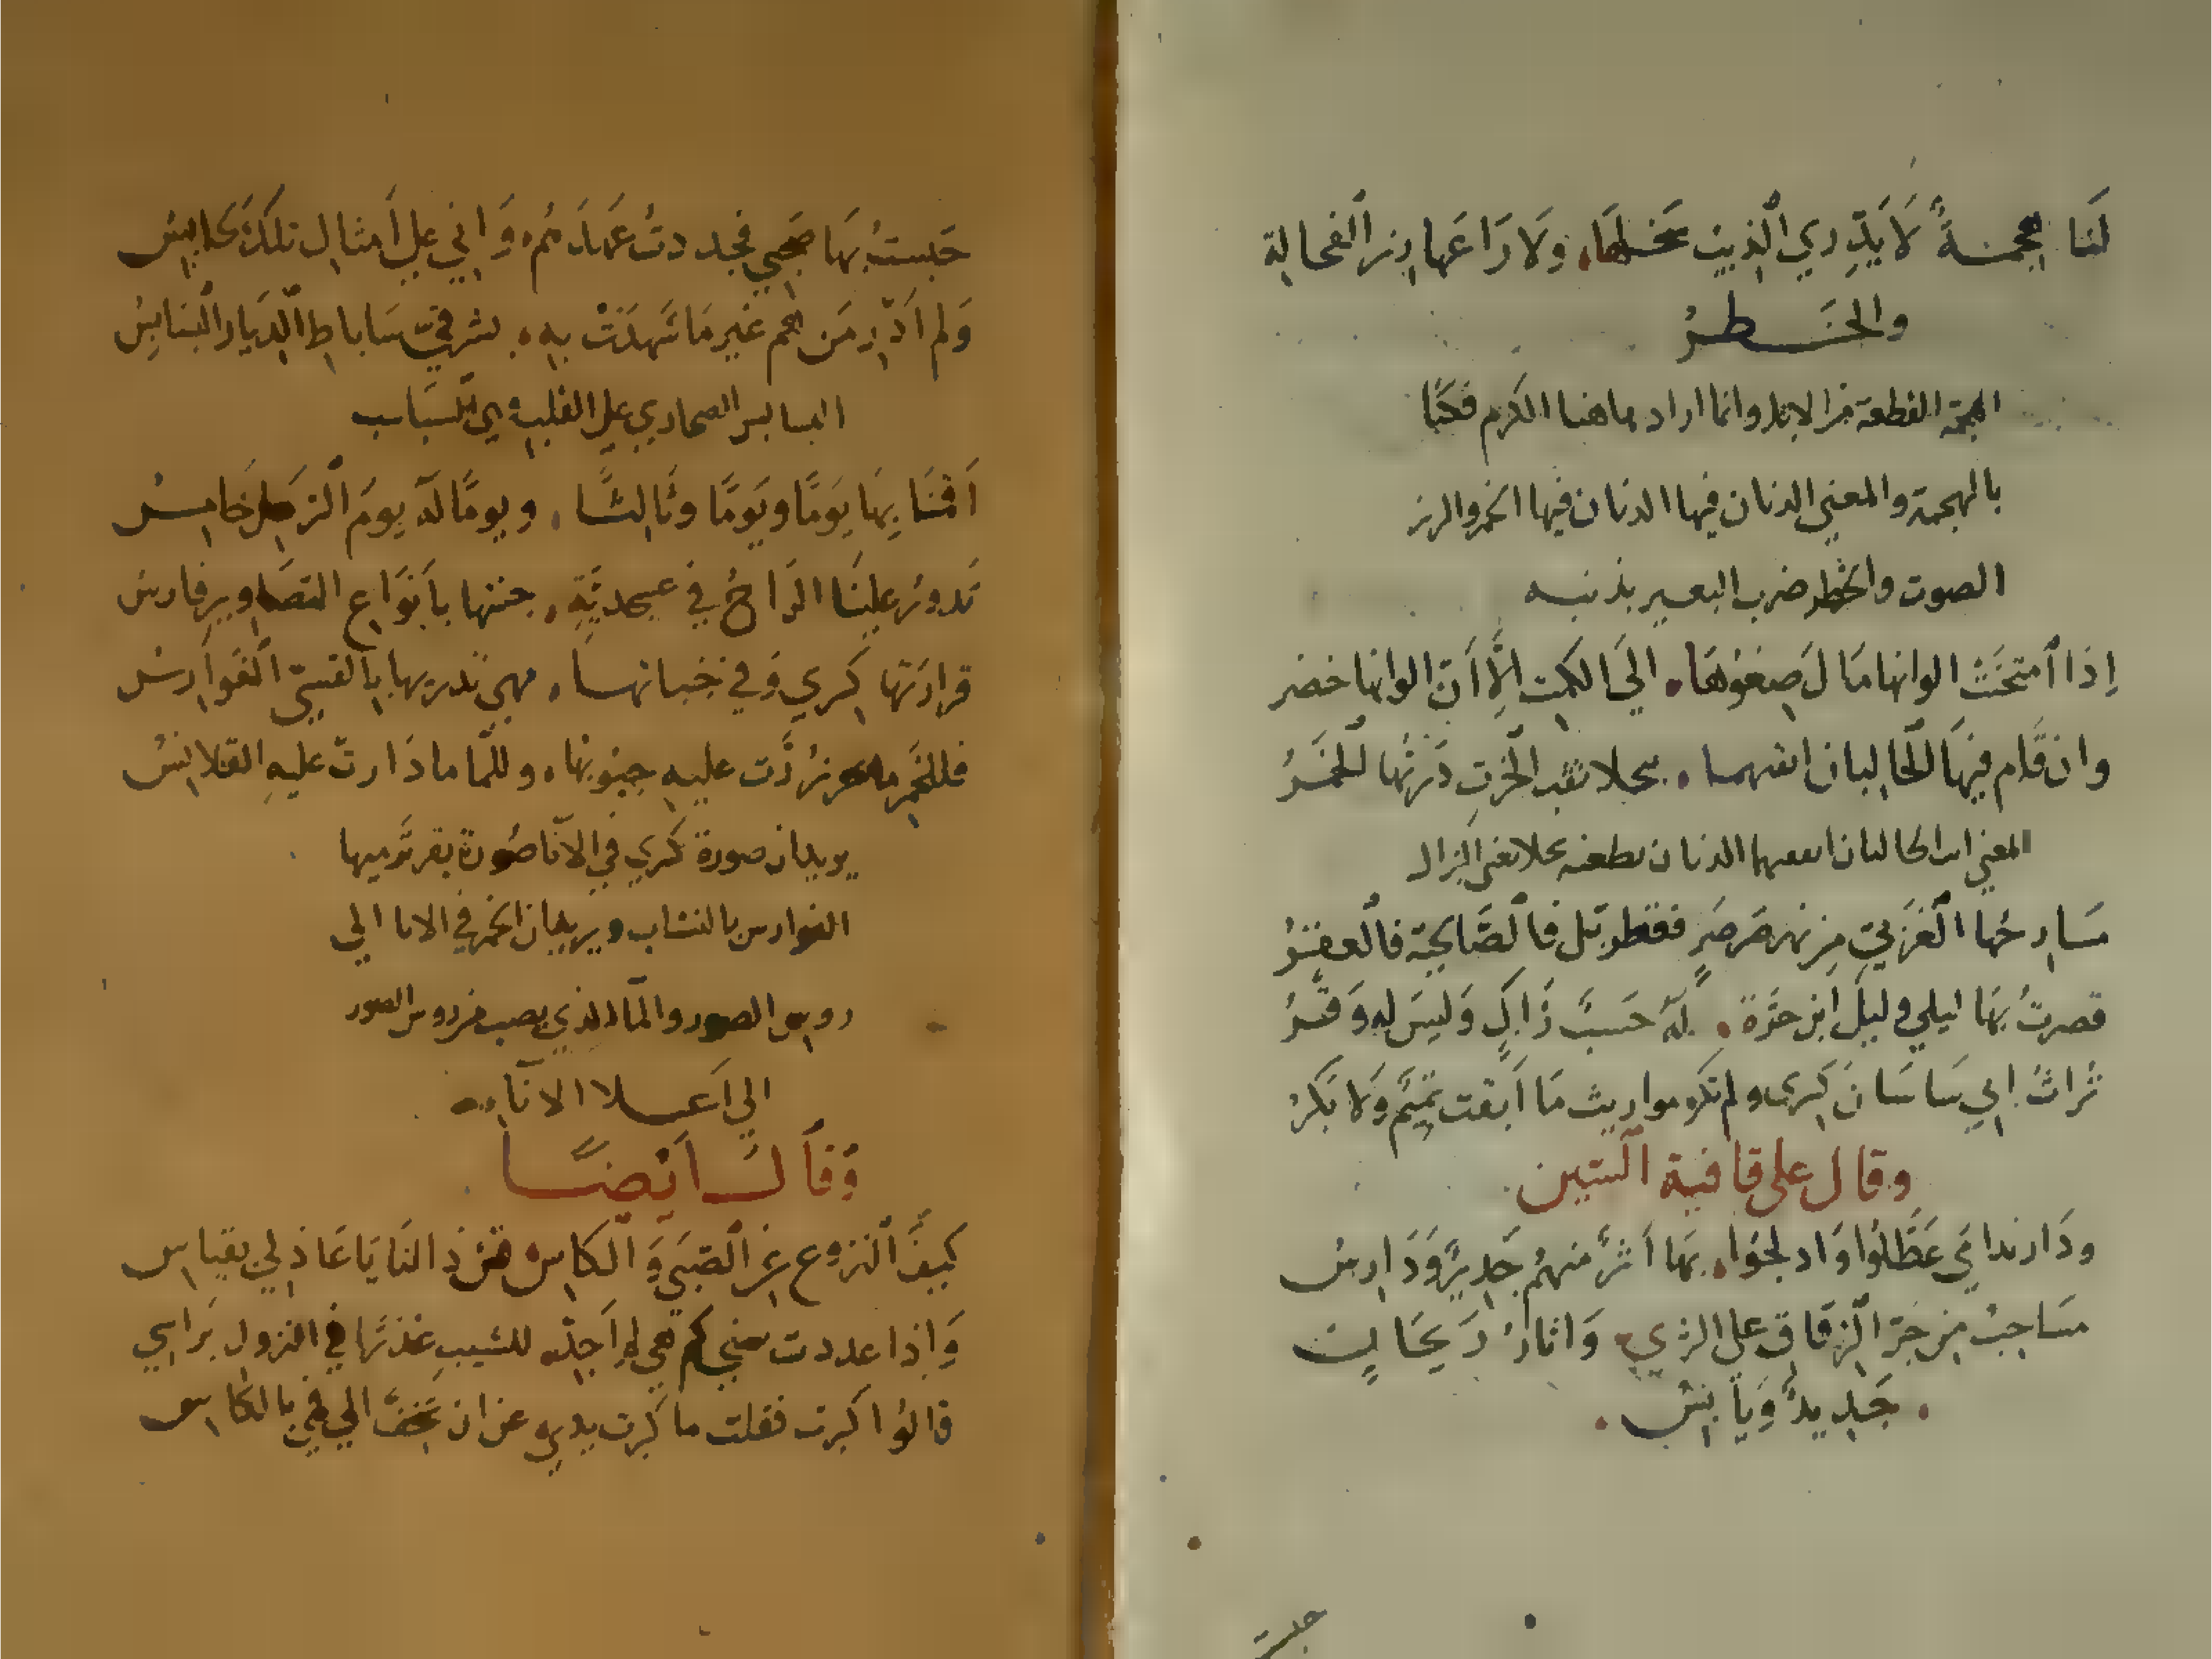 لَنَا هجمـةً لَا يَدّرِي الّذيب سَخلهَا، وَلَا رَاعَها رز الفحالة
والخَـطـرُ
الهجمة القطعة من الابل وانما اراد هاهنا الكرم فكنا
بالهجمة والمعني الدنان فيها الدنان فيها الخمر والرز
الصوت والخطر ضرب البعير بذنبه
اِذَا اُمتحَنَت الوانها مَالَ صفوُهَا، الي الكمت الّا اَن الوانها خضر
وان قَام فيهَا الحَالبان اتقهما، بحلا ثقب الخرت دَرتُها الخمـرُ
المعني ان الحالبان الدنان بطعنه بحلا يعني البزال
مَسَارحُها الغَربيّ من نهر صَرصَرٍ فقطربّل فالصَّالحية فالعقـرُ
قصرتُ بهَا ليلي وليلَ ابن حرّة، لهُ حَسَبٌ زَاكٍ وَليسَ له وَفـرُ
تُراثُ ابي سَاسَانَ كسرى ولم تكن مواريث مَا اَبقت تميمٌ وَلَا بَكرُ
وقال على قافية السّين
ودَار ندامَي عَطَّلوُا وَادلجوُا، بهَا اَثرٌ منهُم جَديدٌ وَدَارسُ
مَسَاحِبُ من جَرّ الزّقَاق على الثري وَاضغَاثُ رَيحَانٍ
، جَديدٌ وَيَابسُ ،
حبست
حَبستُ بهَا صَحبي فجددتُ عَهدَهُم، وَاني على اَمثالِ تلكَ لحَابسُ
وَلم اَدّرِ مَن هُم غَير مَا شهدَتْ به، بشرقيّ سَاباط الّديَار البَسَابسُ
البسابس الصحاري على القلب هي السّبَاسب
اَقمنَا بهَا يَومًا ويَومًا وثَالثًا، ويومًا لَهُ يومَ التّرحل خَامسُ
تَدورُ علينَا الرّاحُ في عسجديّةٍ، حبتها باَنوَاع التصَاوير فارسُ
قرارَتها كسري وَفي جَنباتها، مهي تدريها بالقسيّ الفَوَارسُ
فللخَمر ما زُرَّت عليه جيوُبها، وللمَا مادَارت عليهِ القلانسُ
يريد ان صورة كسري في الانَا صُورة بقر ترميها
الفوارس بالنشاب ويريد ان الخمر في الانا الي
روس الصور والمَا الذي يصب من روس الصور
الي اَعـلا الانَا
وَقَالَ اَيضًا
كيفَ النزوع عن الصّبَي وَالكاس قس ذَا لنَا يَا عَاذلي بقيَاس
وَاذا عددت سني كم هي لم اَجد للشيبِ عُذرًا في النزول براسي
قالوُا كبرت فقلت ما كبرت يدي عن ان تَخفَّ الي فمي بالكاس